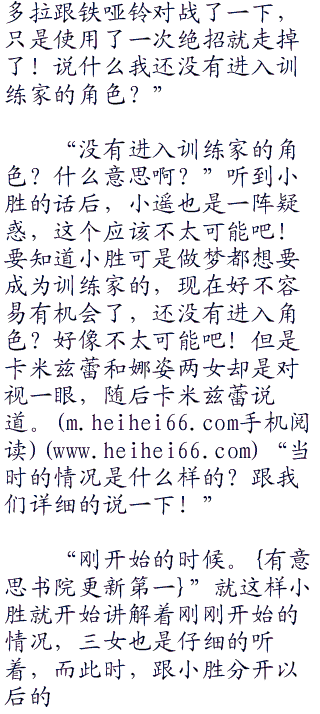 多拉跟铁哑铃对战了一下，
只是使用了一次绝招就走掉
了！说什么我还没有进入训
练家的角色？”
“没有进入训练家的角
色？什么意思啊？”听到小
胜的话后，小遥也是一阵疑
惑，这个应该不太可能吧！
要知道小胜可是做梦都想要
成为训练家的，现在好不容
易有机会了，还没有进入角
色？好像不太可能吧！但是
卡米兹蕾和娜姿两女却是对
视一眼，随后卡米兹蕾说
道。(m.heihei66.com手机阅
读)(www.heihei66.com)“当
时的情况是什么样的？跟我
们详细的说一下！”
“刚开始的时候。{有意
思书院更新第一}”就这样小
胜就开始讲解着刚刚开始的
情况，三女也是仔细的听
着，而此时，跟小胜分开以
后的